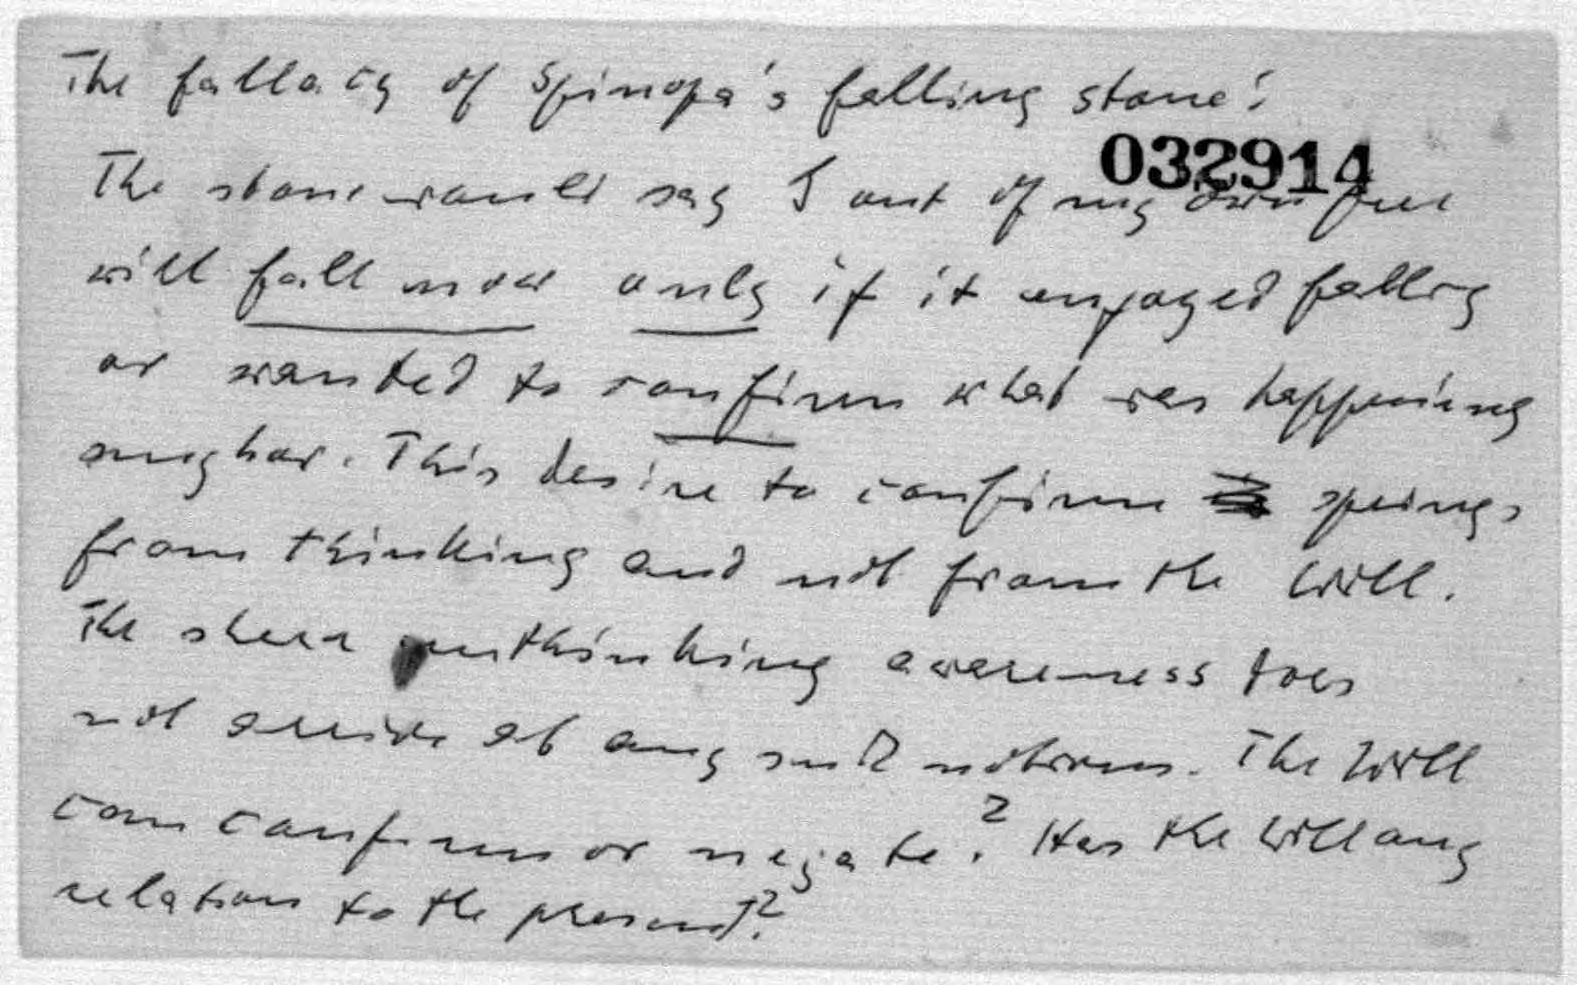 The fallacy of Spinoza's falling stone:
032914
The stone would say I out of my own free
will fall now only if it enjoyed falling
or wanted to confirm what was happening
anyhow. This desire to confirm springs
from thinking and not from the will.
The sheer unthinking awareness does
not arrive at any such notions. The Will
can confirm or negate? Has the Will any
relation to the present?